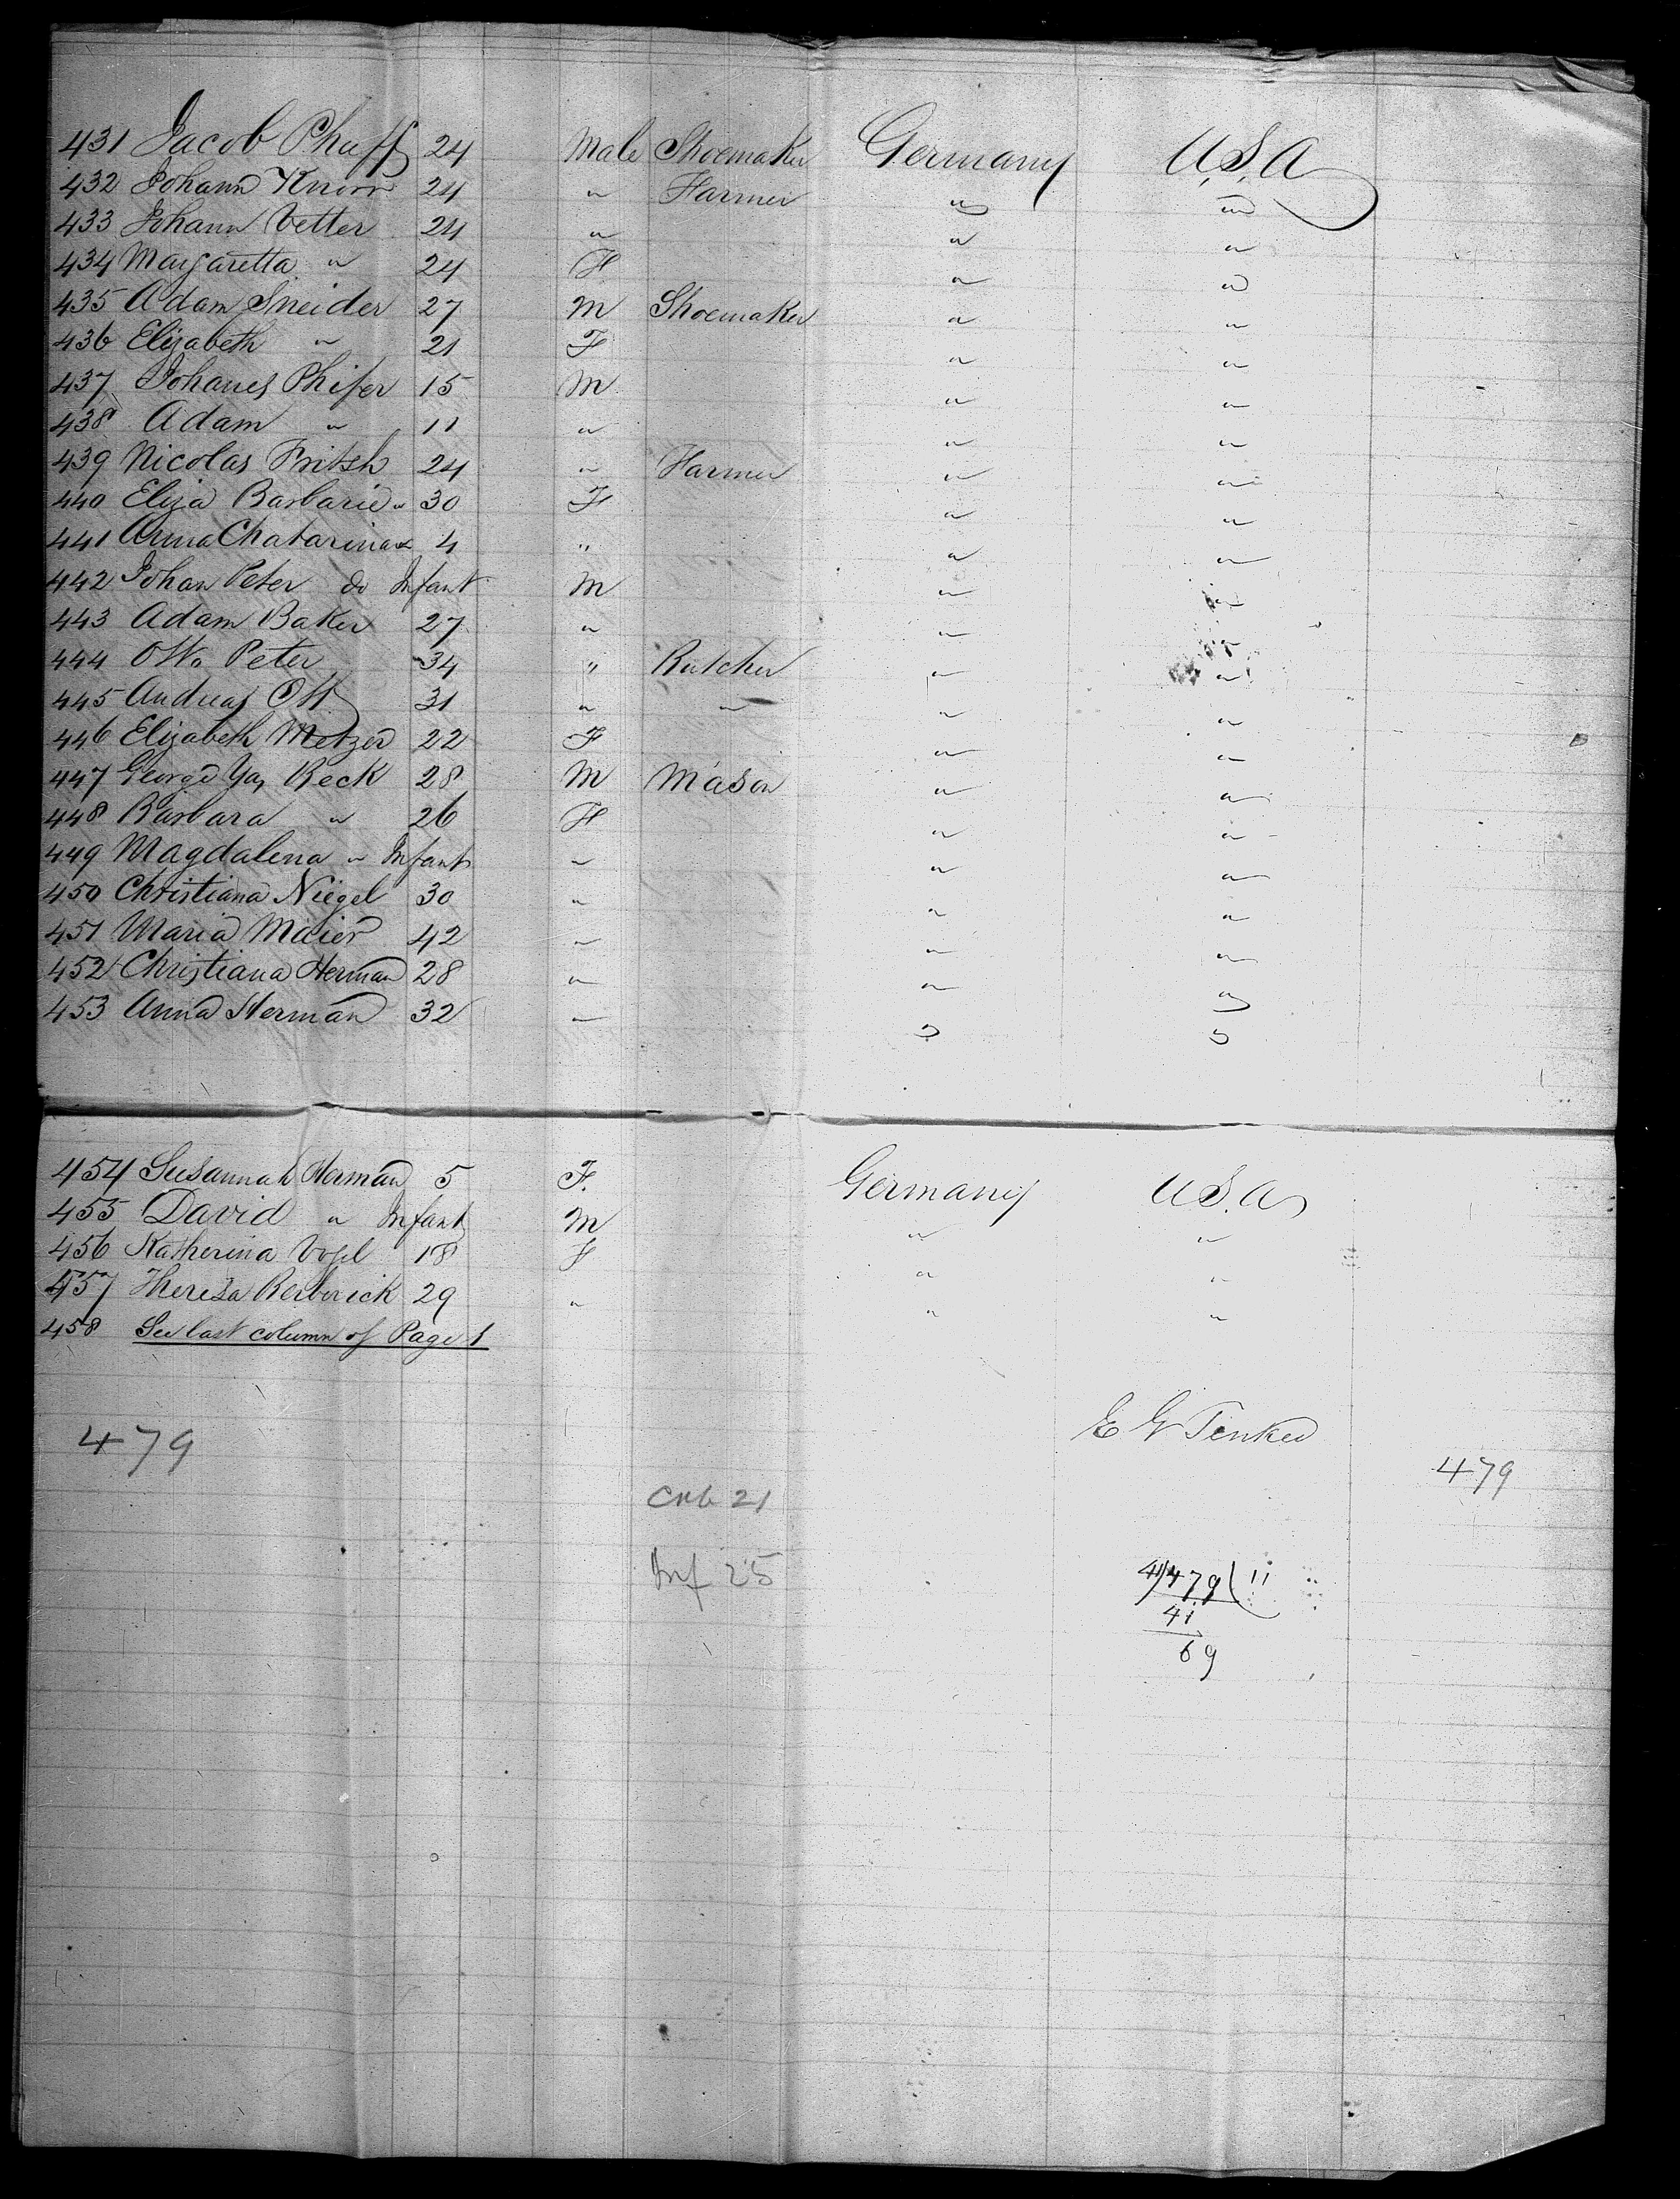 431 Jacob Phaff 24 Male Shoemaker Germany U.S.A
432 Johann Knorr 24 " Farmer " "
433 Johann Vetter 24 " " "
434 Margaretta " 24 F " "
435 Adam Sneider 27 M Shoemaker " "
436 Elizabeth " 21 F " "
437 Johanes Phifer 15 M " "
438 Adam " 11 " " "
439 Nicolas Fritsh 24 " Farmer " "
440 Eliza Barbarie " 30 F " "
441 Anna Chatarina " 4 " " "
442 Johan Peter do Infant M " "
443 Adam Baker 27 " " "
444 Otto Peter 34 " Butcher " "
445 Andreas Ott 31 " " " "
446 Elizabeth Metzer 22 F " "
447 George Beck 28 M Mason " "
448 Barbara " 26 F " "
449 Magdalena " Infant " " "
450 Christiana Niegel 30 " " "
451 Maria Maier 42 " " "
452 Christiana Herman 28 " " "
453 Anna Herman 32 " " "
454 Susannah Herman 5 F. Germany U.S.A
455 David " Infant M " "
456 Katherina Vogel 18 F " "
457 Theresa Berberick 29 " " "
458 See last column of Page 1
E G Tinker
479 479
21
Inf 25
41)479(11
41
69